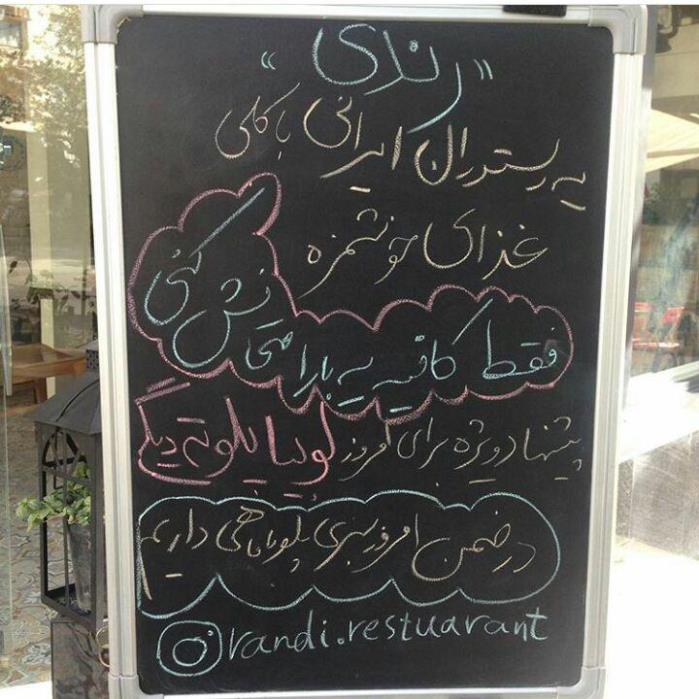 "رندی"
یه رستوران ایرانی با کلی
غذای خوشمزه
فقط کافیه یه بار امتحانش کنی
پیشنهاد ویژه برای امروز لوبیا پلو ته دیگی
در ضمن امروز سبزی پلو با ماهی داریم
randi.restuarant